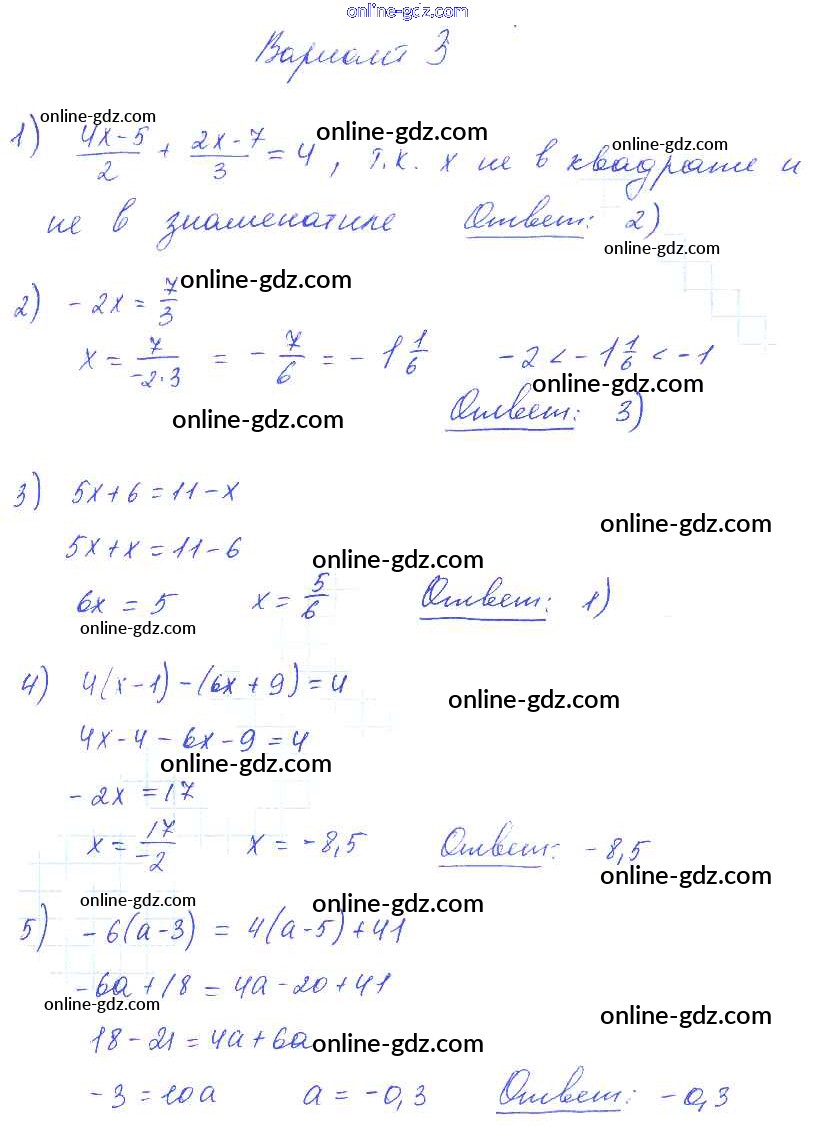 online-gdz.com
Вариант 3
online-gdz.com
1) (4x-5)/2 + (2x-7)/3 = 4, т.к. x не в квадрате и
online-gdz.com
online-gdz.com
не в знаменателе Ответ: 2)
online-gdz.com
2) -2x = 7/3
online-gdz.com
x = 7/(-2·3) = -7/6 = -1 1/6 -2 < -1 1/6 < -1
online-gdz.com
online-gdz.com
Ответ: 3)
3) 5x+6 = 11-x
online-gdz.com
5x+x = 11-6
online-gdz.com
6x = 5 x = 5/6 Ответ: 1)
online-gdz.com
4) 4(x-1)-(6x+9) = 4
online-gdz.com
4x-4-6x-9 = 4
online-gdz.com
-2x = 17
x = 17/-2 x = -8,5 Ответ: -8,5
online-gdz.com
online-gdz.com
online-gdz.com
5) -6(a-3) = 4(a-5)+41
-6a+18 = 4a-20+41
online-gdz.com
online-gdz.com
18-21 = 4a+6a
online-gdz.com
-3 = 10a a = -0,3 Ответ: -0,3